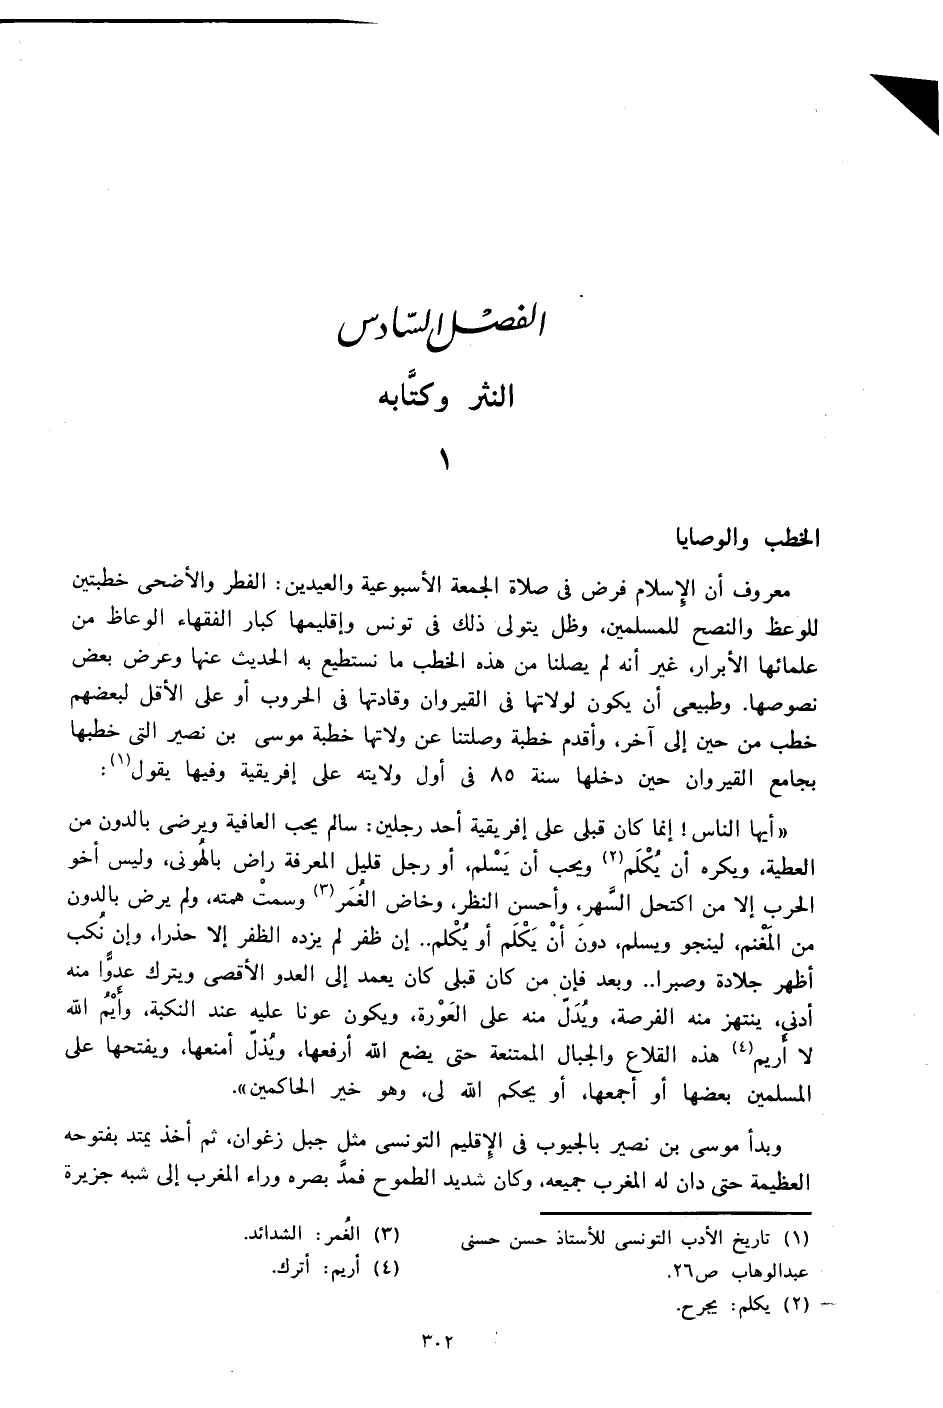 الفصل السادس
النثر وكتَّابه
١
الخطب والوصايا
معروف أن الإسلام فرض فى صلاة الجمعة الأسبوعية والعيدين: الفطر والأضحى خطبتين
للوعظ والنصح للمسلمين، وظل يتولى ذلك فى تونس وإقليمها كبار الفقهاء الوعاظ من
علمائها الأبرار، غير أنه لم يصلنا من هذه الخطب ما نستطيع به الحديث عنها وعرض بعض
نصوصها. وطبيعى أن يكون لولاتها فى القيروان وقادتها فى الحروب أو على الأقل لبعضهم
خطب من حين إلى آخر، وأقدم خطبة وصلتنا عن ولاتها خطبة موسى بن نصير التى خطبها
بجامع القيروان حين دخلها سنة ٨٥ فى أول ولايته على إفريقية وفيها يقول(١):
«أيها الناس! إنما كان قبلى على إفريقية أحد رجلين: سالم يحب العافية ويرضى بالدون من
العطية، ويكره أن يُكْلَم(٢) ويحب أن يَسْلم، أو رجل قليل المعرفة راض بالهُونى، وليس أخو
الحرب إلا من اكتحل السَّهر، وأحسن النظر، وخاض الغُمَر(٣) وسمتْ همته، ولم يرض بالدون
من المَغْنم، لينجو ويسلم، دونَ أنْ يَكْلَم أو يُكْلم.. إن ظفر لم يزده الظفر إلا حذرا، وإن نُكب
أظهر جلادة وصبرا.. وبعد فإن من كان قبلى كان يعمد إلى العدو الأقصى ويترك عدوًّا منه
أدنى، ينتهز منه الفرصة، ويُدَلّ منه على العَوْرة، ويكون عونا عليه عند النكبة، وأَيْمُ الله
لا أَريم(٤) هذه القلاع والجبال الممتنعة حتى يضع الله أرفعها، ويُذلّ أمنعها، ويفتحها على
المسلمين بعضها أو أجمعها، أو يحكم الله لى، وهو خير الحاكمين».
وبدأ موسى بن نصير بالجيوب فى الإقليم التونسى مثل جبل زغوان، ثم أخذ يمتد بفتوحه
العظيمة حتى دان له المغرب جميعه، وكان شديد الطموح فمدَّ بصره وراء المغرب إلى شبه جزيرة
(١) تاريخ الأدب التونسى للأستاذ حسن حسنى
عبدالوهاب ص٢٦.
(٢) يكلم: يجرح.
(٣) الغُمر: الشدائد.
(٤) أريم: أترك.
٣٠٢